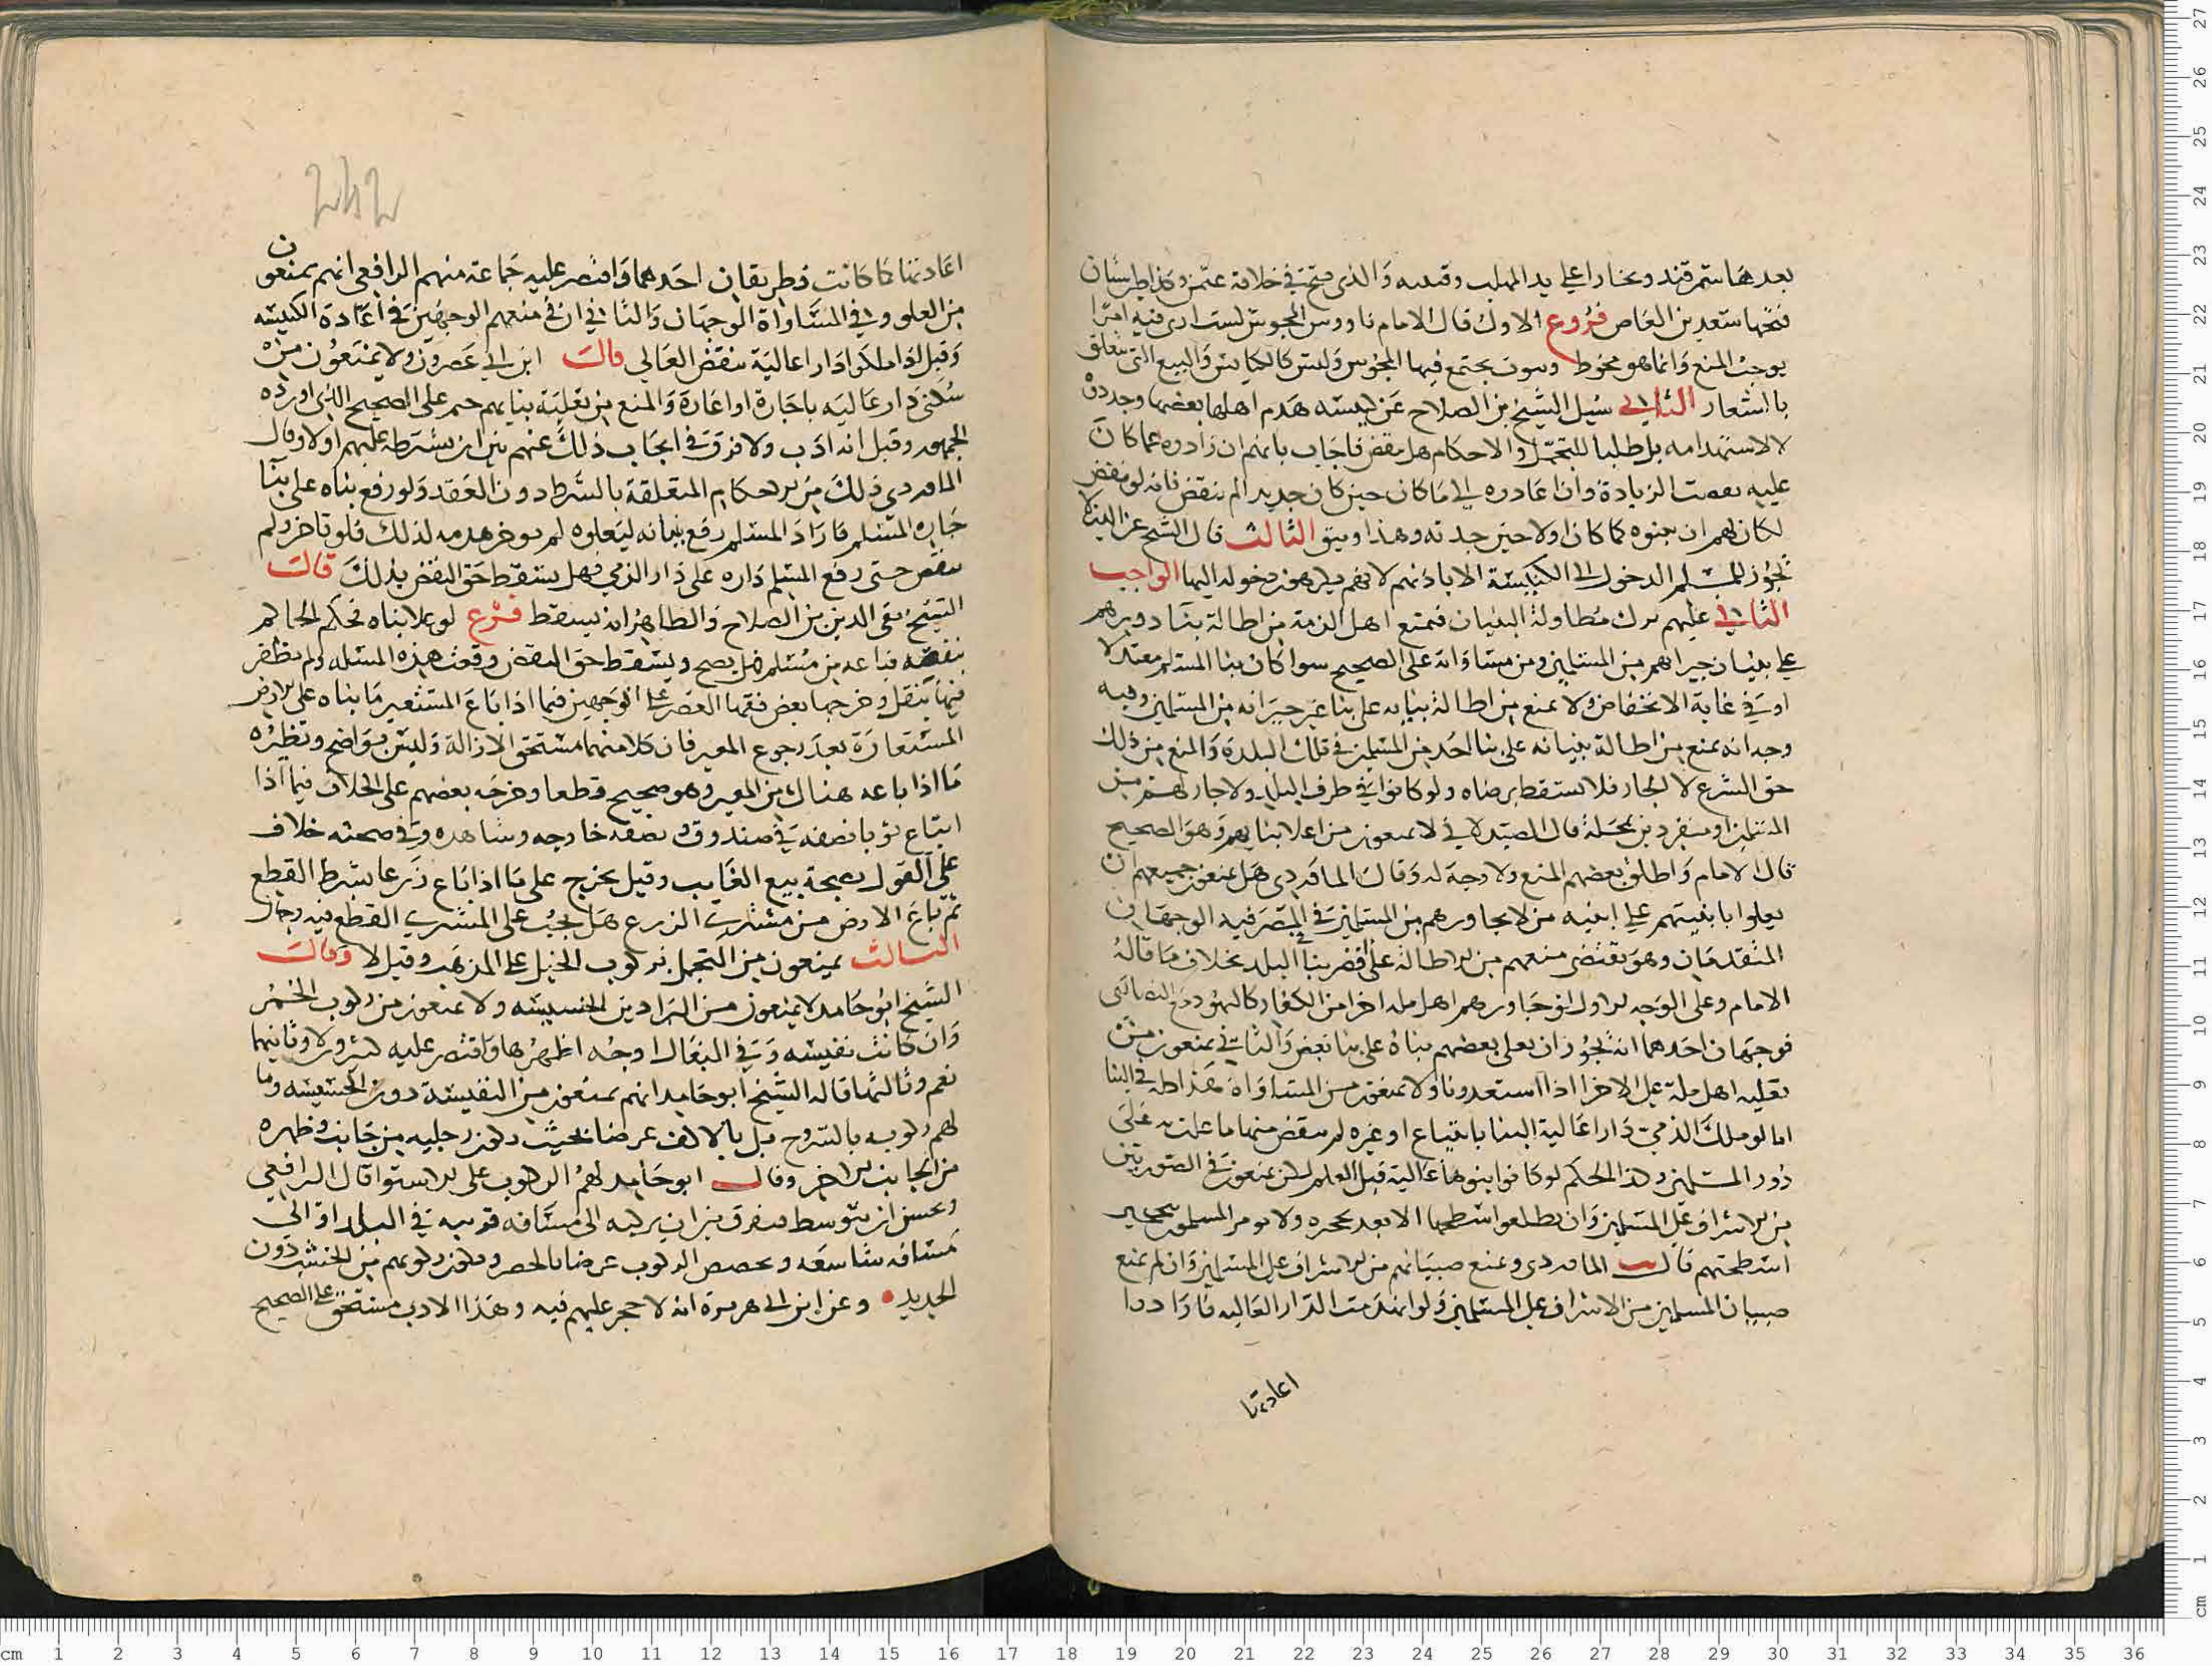 بعدها سمرقند وبخارا علي يد المهلب وقتيبه وَالذي فتح في خلافة عثمن وكذا طبرستان
فتحها سعيد بن العاص فروع الاول قال الامام ناووس المجوس لست ارى فيه امرًا
يوجب المنع وَانما هو محوط وبيوت يجتمع فيها المجوس وَليس كالكنايس وَالبيع التي تتعلق
بالشعار الثاني سُيل الشيخ بن الصلاح عَن كنيسه هَدم اهلها بعضها وجددوه
لالاستهدامه بل طلبا للتجمل والاحكام هل ينقض فاجاب بانهم ان زادوه عما كان
عليه نقضت الزيادة وان اعادوه الي ما كان حين كان جديدا لم ينقض فانه لو نقض
لكان لهم ان يبنوه كما كان اولا حين جدته وهذا وبيق الثالث قال الشيخ عز الدين لا
تجوز للمسلم الدخول الى الكنيسة الا باذنهم لانهم يكرهون دخوله اليها الواجب
الثاني عليهم ترك مُطاولة البنيان فيمنع اهل الذمة من اطالة بنا دورهم
علي بنيان جيرانهم من المسلمين ومن مساواته على الصحيح سوا كان بنا المسلم معتدلا
او في غاية الانخفاض ولا يمنع من اطالة بنيانه على بنا غير جيرانه من المسلمين وفيه
وجه انه يمنع من اطالة بنيانه على بنا احد من المسلمين في تلك البلدة وَالمنع من ذلك
حق الشرع لا الجار فلا يسقط برضاه ولو كانوا في طرف البلد ولا جار لهم من
المسلمين او منفردين بمحلة قال الصيدلاني لا يمنعون من اعلا بنايهم وَهوَ الصحيح
قال الامام وَاطلق بعضهم المنع ولا وجه له وَقال الماوردي هل يمنعون جميعهم ان
يعلوا بابنيتهم علي ابنيه من لا يجاورهم من المسلمين في المصر فيه الوجهان
المتقدمان وهو يقتضي منعهم من الاطالة على اقصر بنا في البلد بخلاف ما قالهُ
الامام وعلى الوجه الاول لو جاورهم اهل مله اخرا من الكفار كاليهود مع النصارى
فوجهان احدهما انه يجوز ان يعلى بعضهم بناهُ على بنا بعض وَالثاني يمنعون من
تعليه اهل ملة على الاخرا اذا استعدونا ولا يمنعون من المساواة هذا كله في البنا
اما لو ملك الذمي دَارا عَالية البنا بابتياع او غيره لم ينقض منها ما علت به على
دُور المسلمين وكذا الحكم لو كانوا بنوها عَالية قبل العلم لكن يمنعون في الصورتين
من الاشراف على المسلمين وَان يطلعوا سطحها الا بعد تحجره ولا يومر المسلمون بتحجير
اسطحتهم قالـــ الماوردي ويمنع صبيانهم من الاشراف على المسلمين وَان لم يمنع
صبيان المسلمين من الاشراف على المسلمين وَلو انهدَمت الدّار العَاليه فارَادوا
اعادتنا
اعَادتنا كما كانت فطريقان احَدهما وَاقتصر عليه جَماعة منهم الرافعي انهم يمنعون
من العلو وفي المسَاواة الوجهان وَالثاني ان في منعهم الوجهين في اعَادة الكنيسه
وَقيل اذا ملكوا دارا عالية ينقض العالي قالـَ ابن ابي عَصرون ولا يمنَعُون من
سُكنى دَار عَاليه باجَارة او اعَارة وَالمنع من تعلية بنايهم حتم على الصحيح الذي اورده
الجمهور وقيل انه ادَب ولا فرق في ايجاب ذلك عنهم بين ان يشترط عليهم اولا وقال
الماوردي ذلك من الاحكام المتعلقة بالشرط دون العَقد وَلو رفع بناه على بنا
جَاره المسلم فارَادَ المسلم رفع بنيانه ليَعلوه لم يوخر هدمه لذلك فلو تاخر ولم
ينقض حتى رفع المسلم دَاره على دَار الذمي فهل يسقط حق النقض بذلك قالـَ
الشيخ تقي الدين بن الصلاح وَالظاهر انه يسقط فرْع لو علا بناه فحكم الحاكم
بنقضه فباعه من مسلم هل يصح ويسقط حق النقض وقعت هذه المسئله ولم يظفر
فيها بنقل وخرجها بعض فقها العَصر على الوجهين فيما اذا باعَ المستعير ما بناه على الارض
المستعَارة بعدَ رجوع المعير فان كلا منهما مستحق الازالة وَليسَ بوَاضح ونظيره
مَا اذا باعه هناك من المعير وهو صحيح قطعا وخرجَه بعضهم على الخلاف فيما اذا
ابتاع ثوبا نصفه في صندوق ونصفه خارجه وشاهده وفي صحته خلاف
على القول بصحة بيع الغايب وقيل يخرج على ما اذا بَاع زَرعا بشرط القطع
ثم باعَ الارض من مشتري الزرع هَل يجبُ على المشتري القطع فيه وجهان
الثالث يمنعون من التجمل بركوب الخيل على المذهب وقيل لا وقالـَ
الشيخ ابُو حَامد لا يمنعون من البراذين الخسيسه ولا يمنعون من ركوب الحُمر
وَان كانت نفيسه وَفي البغَال اوجُه اظهرُها وَاقتصر عليه كثيرون لا وثانيها
نعم وثالثها قاله الشيخ ابو حَامد انهم يمنعون من النفيسة دون الخسيسه وما
لهم ركوبه بالسّروج قيل بالاكف عرضا بحيث يكون رجليه من جَانب وظهره
من الجانب الاخر وقالـــ ابو حَامد لهمُ الركوب على الاستوا قال الرافعي
وَيحسن ان يتوسط فيفرق بين ان يركبه الى مسَافه قريبه في البلد او الى
مسَافه شاسعَه ويخصص الركوب عرضا بالحضر ويكون ركوبهم من الخشب دُون
الحديد • وعن ابن ابي هريرة انه لا حجر عليهم فيه وهَذا الادب مستحق على الصحيح